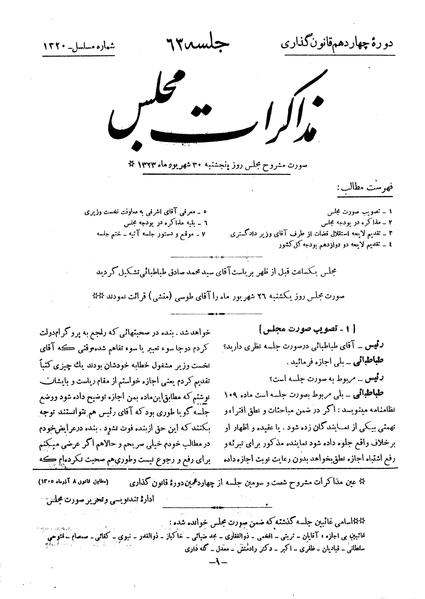 دورهٔ چهاردهم قانون گذاری
جلسه ۶۳
شماره مسلسل - ۱۳۲۰
مذاکرات مجلس
صورت مشروح مجلس روز پنجشنبه ۳۰ شهریور ماه ۱۳۲۳ *
فهرست مطالب:
۱ - تصویب صورت مجلس
۲ - مذاکره در بودجه مجلس
۳ - تقدیم لایحه استقلال قضات از طرف آقای وزیر دادگستری
۴ - تقدیم لایحه دو دوازدهم بودجه کل کشور
۵ - معرفی آقای اشرفی به معاونت نخست وزیری
۶ - بقیه مذاکره در بودجه مجلس
۷ - موقع و دستور جلسه آتیه - ختم جلسه
مجلس یکساعت قبل از ظهر بریاست آقای سید محمد صادق طباطبائی تشکیل گردید
صورت مجلس روز یکشنبه ۲۶ شهریور ماه را آقای طوسی (منشی) قرائت نمودند **
[۱ - تصویب صورت مجلس]
رئیس - آقای طباطبائی در صورت جلسه نظری دارید؟
طباطبائی - بلی اجازه فرمائید.
رئیس - مربوط به صورت جلسه است؟
طباطبائی - بلی مربوط بصورت جلسه است ماده ۱۰۹
نظامنامه مینویسد: اگر در ضمن مباحثات و نطق افترا و
تهمتی بیکی از نمایندگان زده شود. یا عقیده و اظهار او
برخلاف واقع جلوه داده شود نماینده مذکور برای تبرئه و
رفع اشتباه اجازه نطق بخواهد بدون رعایت نوبت اجازه داده
خواهد شد. بنده در صحبتهائی که راجع به پروگرام دولت
کردم دوجا سوء تعبیر یا سوء تفاهم شده وقتی که آقای
نخست وزیر مشغول خطابه خودشان بودند یک چیزی کتباً
تقدیم کردم یعنی اجازه خواستم از مقام ریاست و بایشان
نوشتم که مطابق این ماده بمن اجازه توضیح داده شود ووضع
جلسه گویا طوری بود که آقای رئیس هم نتوانستند توجه
بکنند که این حق از بنده فوت نشود. بنده در عرایض خودم
در مطالب خودم خیلی صریحم و حالا هم اگر عرضی میکنم
برای رفع و رجوع نیست وطوری هم صحبت نکرده‌ام که
* عین مذاکرات مشروح شصت و سومین جلسه از چهاردهمین دورهٔ قانون گذاری
(مطابق قانون ۸ آذرماه ۱۳۰۵)
ادارهٔ تندنویسی و تحریر صورت مجلس
** اسامی غائبین جلسه گذشته که ضمن صورت مجلس خوانده شده:
غائبین بی اجازه - آقایان - تربتی - افخمی - ذوالفقاری - مجد ضیائی - خاکباز - ذوالقدر - نبوی - کفائی - صمصام - فتوحی
سلطانی - قبادیان - ظفری - اکبر - دکتر رادمنش - معدل - گله داری
-۱-